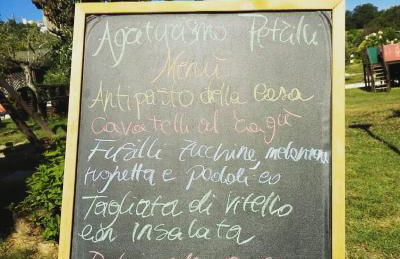 Agriturismo Petrilli
Menù
Antipasto della Casa
Cavatelli al Ragù
Fusilli zucchine, melanzane
rughetta e pachino
Tagliata di Vitello
con insalata